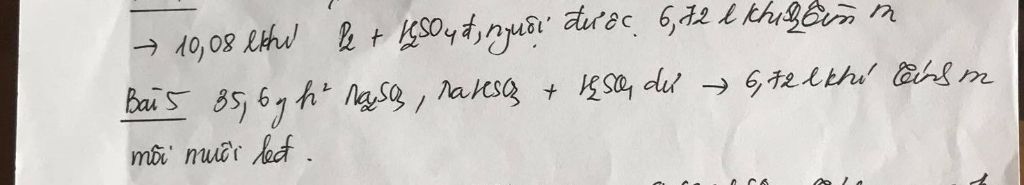 → 10,08 l khí P2 + H2SO4 đ, nguội được 6,72 l khí. Tính m
Bài 5 35,6 g h² Na2SO3, NaHSO3 + H2SO4 dư → 6,72 l khí Tính m
mỗi muối bđ.